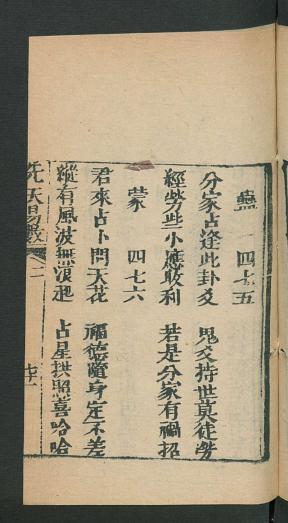 蠱　四七五
分家占逢此卦爻　鬼爻持世莫徒勞
經勞些小應收利　若是分家有禍招
蒙　四七六
君來占卜問天花　福德隨身定不差
縱有風波無浪起　占星拱照喜哈哈
先天易數　二　七十一